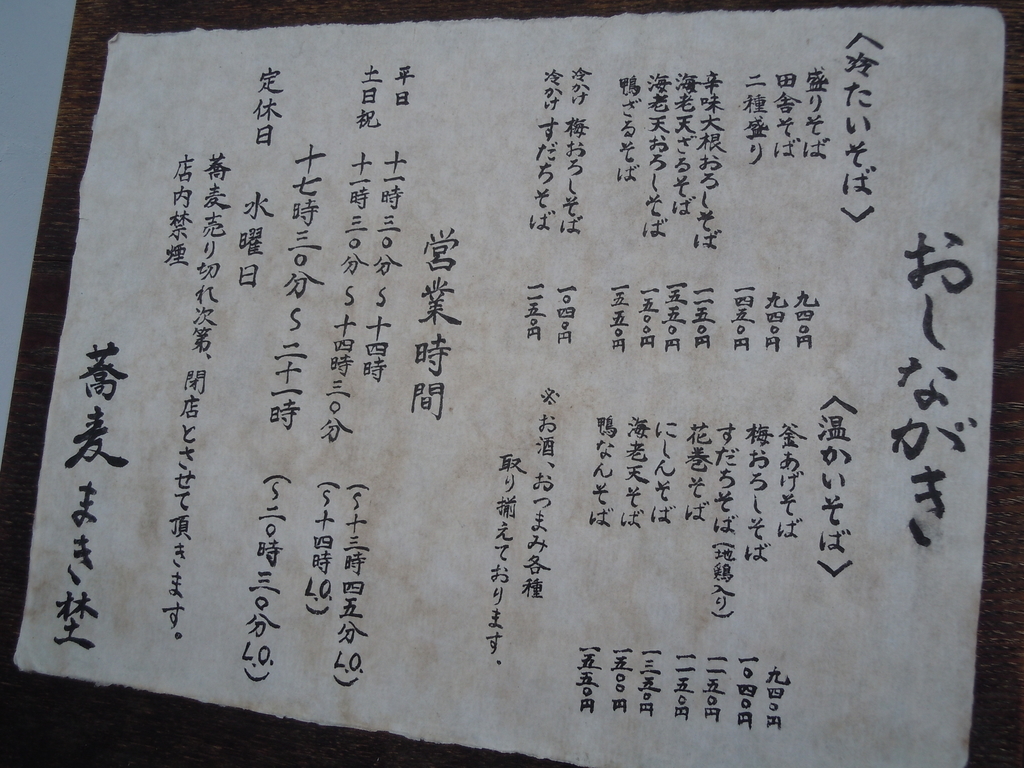 おしながき
〈冷たいそば〉
盛りそば 九四〇円
田舎そば 九四〇円
二種盛り 一四五〇円
辛味大根おろしそば 一一五〇円
海老天ざるそば 一五五〇円
海老天おろしそば 一五〇〇円
鴨ざるそば 一五五〇円
冷かけ 梅おろしそば 一〇四〇円
冷かけ すだちそば 一一五〇円
〈温かいそば〉
釜あげそば 九四〇円
梅おろしそば 一〇四〇円
すだちそば(地鶏入り) 一一五〇円
花巻そば 一一五〇円
にしんそば 一三五〇円
海老天そば 一五〇〇円
鴨なんそば 一五五〇円
※お酒、おつまみ各種
取り揃えております。
営業時間
平日 十一時三〇分〜十四時 (〜十三時四五分L.O.)
土日祝 十一時三〇分〜十四時三〇分 (〜十四時L.O.)
十七時三〇分〜二十一時 (〜二〇時三〇分L.O.)
定休日 水曜日
蕎麦売り切れ次第、閉店とさせて頂きます。
店内禁煙
蕎麦 まき埜